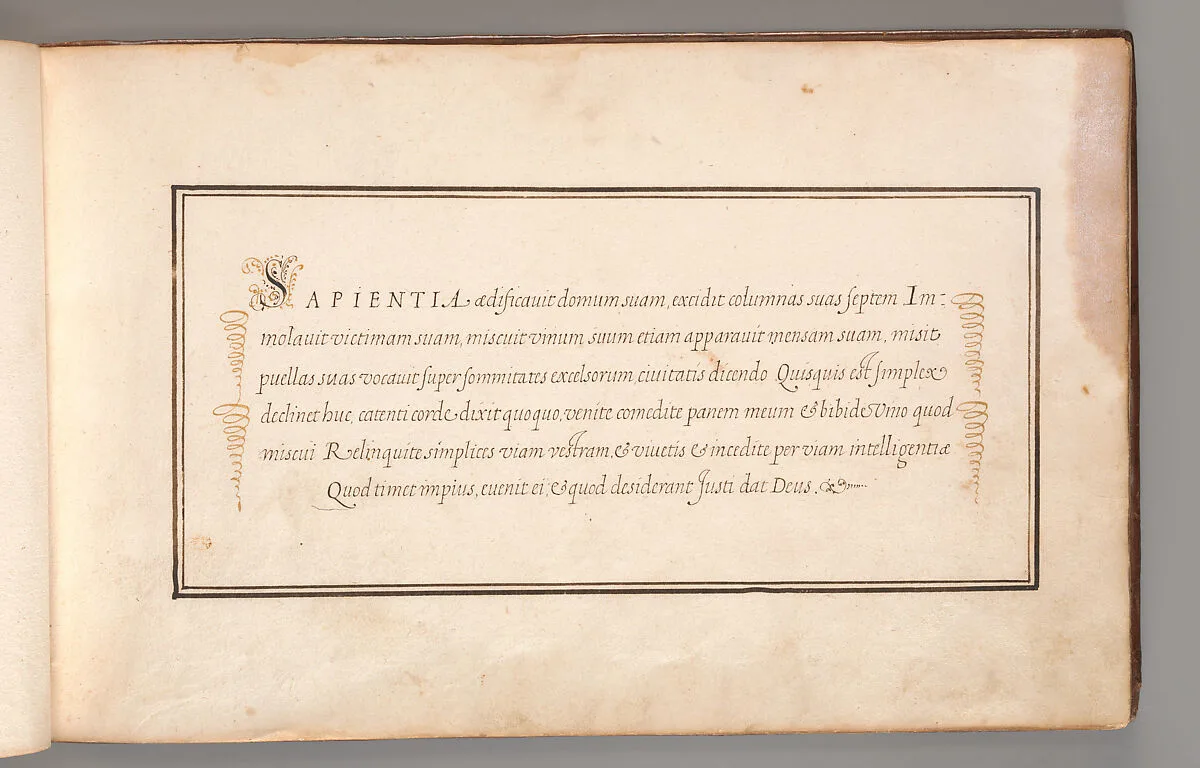 SAPIENTIA ædificauit domum suam, excidit columnas suas septem Im-
molauit victimam suam, miscuit vinum suum etiam apparauit mensam suam, misit
puellas suas vocauit super sommitates excelsorum, ciuitatis dicendo Quisquis est simplex
declinet huc, catenti corde dixit quoquo, venite comedite panem meum & bibide Vino quod
miscui Relinquite simplices viam vestram, & viuetis & incedite per viam intelligentiæ
Quod timet impius, euenit ei, & quod desiderant Justi dat Deus. &